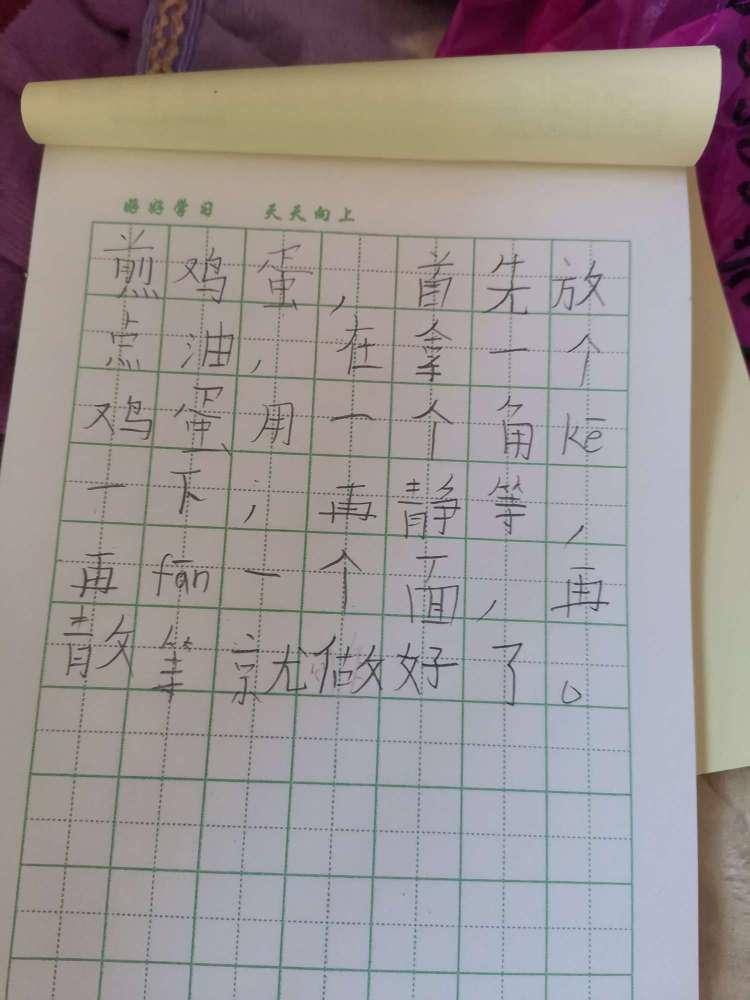 好好学习 天天向上
煎鸡蛋，首先放
点油，在拿一个
鸡蛋用一个角kē
一下，再静等，
再fān一个面，再
等就做好了。